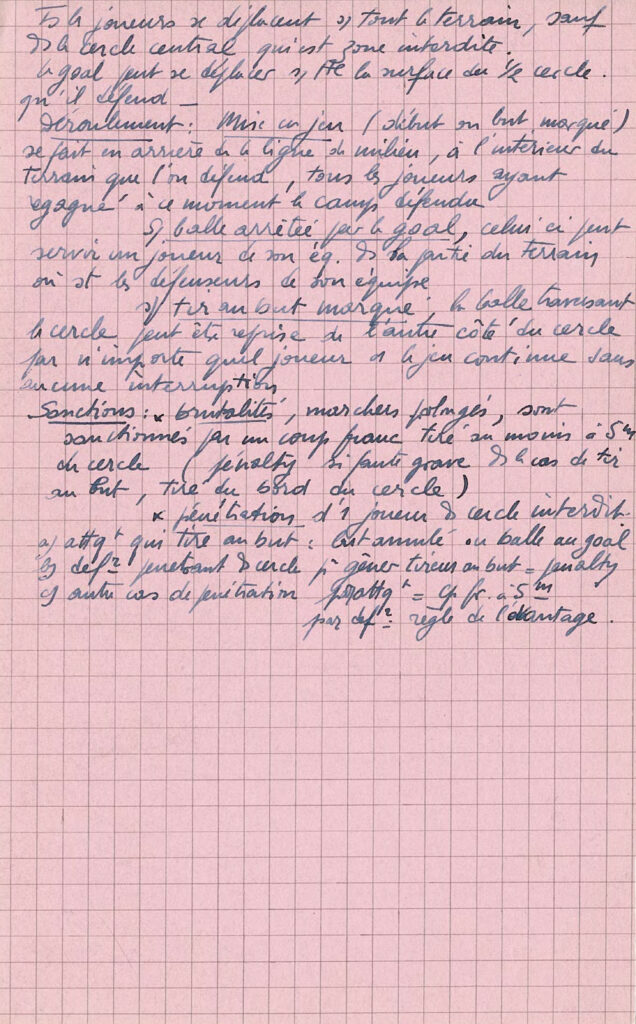 Ts les joueurs se déplacent s/ tout le terrain, sauf
ds le cercle central qui est zone interdite.
le goal peut se déplacer s/ tte la surface du 1/2 cercle.
qu'il défend _
Déroulement : Mise en jeu (début ou but marqué)
se fait en arrière de la ligne du milieu, à l'intérieur du
terrain que l'on défend, tous les joueurs ayant
regagné à ce moment le camp défendu
s/ balle arrêtée par le goal, celui ci peut
servir un joueur de son éq. ds la partie du terrain
où st les défenseurs de son équipe
s/ tir au but marqué ; la balle traversant
le cercle peut être reprise de l'autre côté du cercle
par n'importe quel joueur et le jeu continue sans
aucune interruption
Sanctions : x brutalités, marchers prolongés, sont
sanctionnés par un coup franc tiré au moins à 5m
du cercle (pénalty si faute grave ds le cas de tir
au but, tiré du bord du cercle)
x pénétrations d'1 joueur ds cercle interdit.
a) attqt qui tire au but : but annulé ou balle au goal
b) defr pénétrant ds cercle pr gêner tireur au but = penalty
c) autre cas de pénétration par attqt = cp fr. à 5 m
par defr : règle de l'avantage.